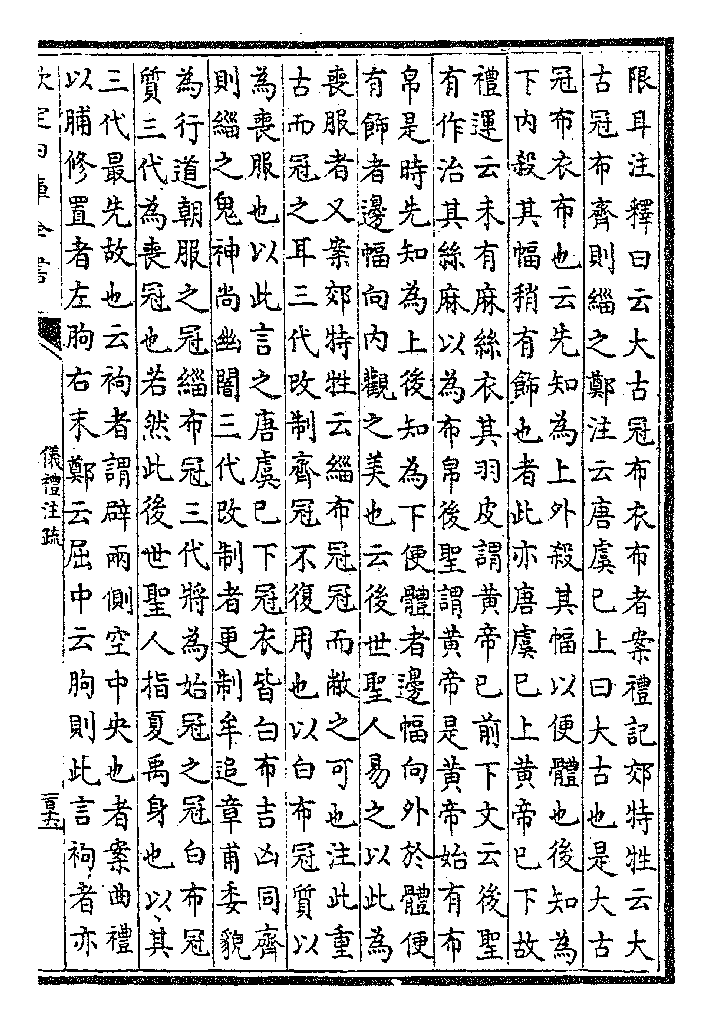 限耳注釋曰云大古冠布衣布者案禮記郊特牲云大
古冠布齊則緇之鄭注云唐虞已上曰大古也是大古
冠布衣布也云先知為上外殺其幅以便體也後知為
下内殺其幅稍有飾也者此亦唐虞已上黃帝已下故
禮運云未有麻絲衣其羽皮謂黃帝已前下文云後聖
有作治其絲麻以為布帛後聖謂黃帝是黃帝始有布
帛是時先知為上後知為下便體者邊幅向外於體便
有飾者邊幅向内觀之美也云後世聖人易之以此為
喪服者又案郊特牲云緇布冠冠而敝之可也注此重
古而冠之耳三代改制齊冠不復用也以白布冠質以
為喪服也以此言之唐虞已下冠衣皆白布吉凶同齊
則緇之鬼神尚幽闇三代改制者更制牟追章甫委貌
為行道朝服之冠緇布冠三代將為始冠之冠白布冠
質三代為喪冠也若然此後世聖人指夏禹身也以其
三代最先故也云袧者謂辟兩側空中央也者案曲禮
以脯修置者左朐右末鄭云屈中云朐則此言袧者亦
欽定四庫全書
儀禮注疏